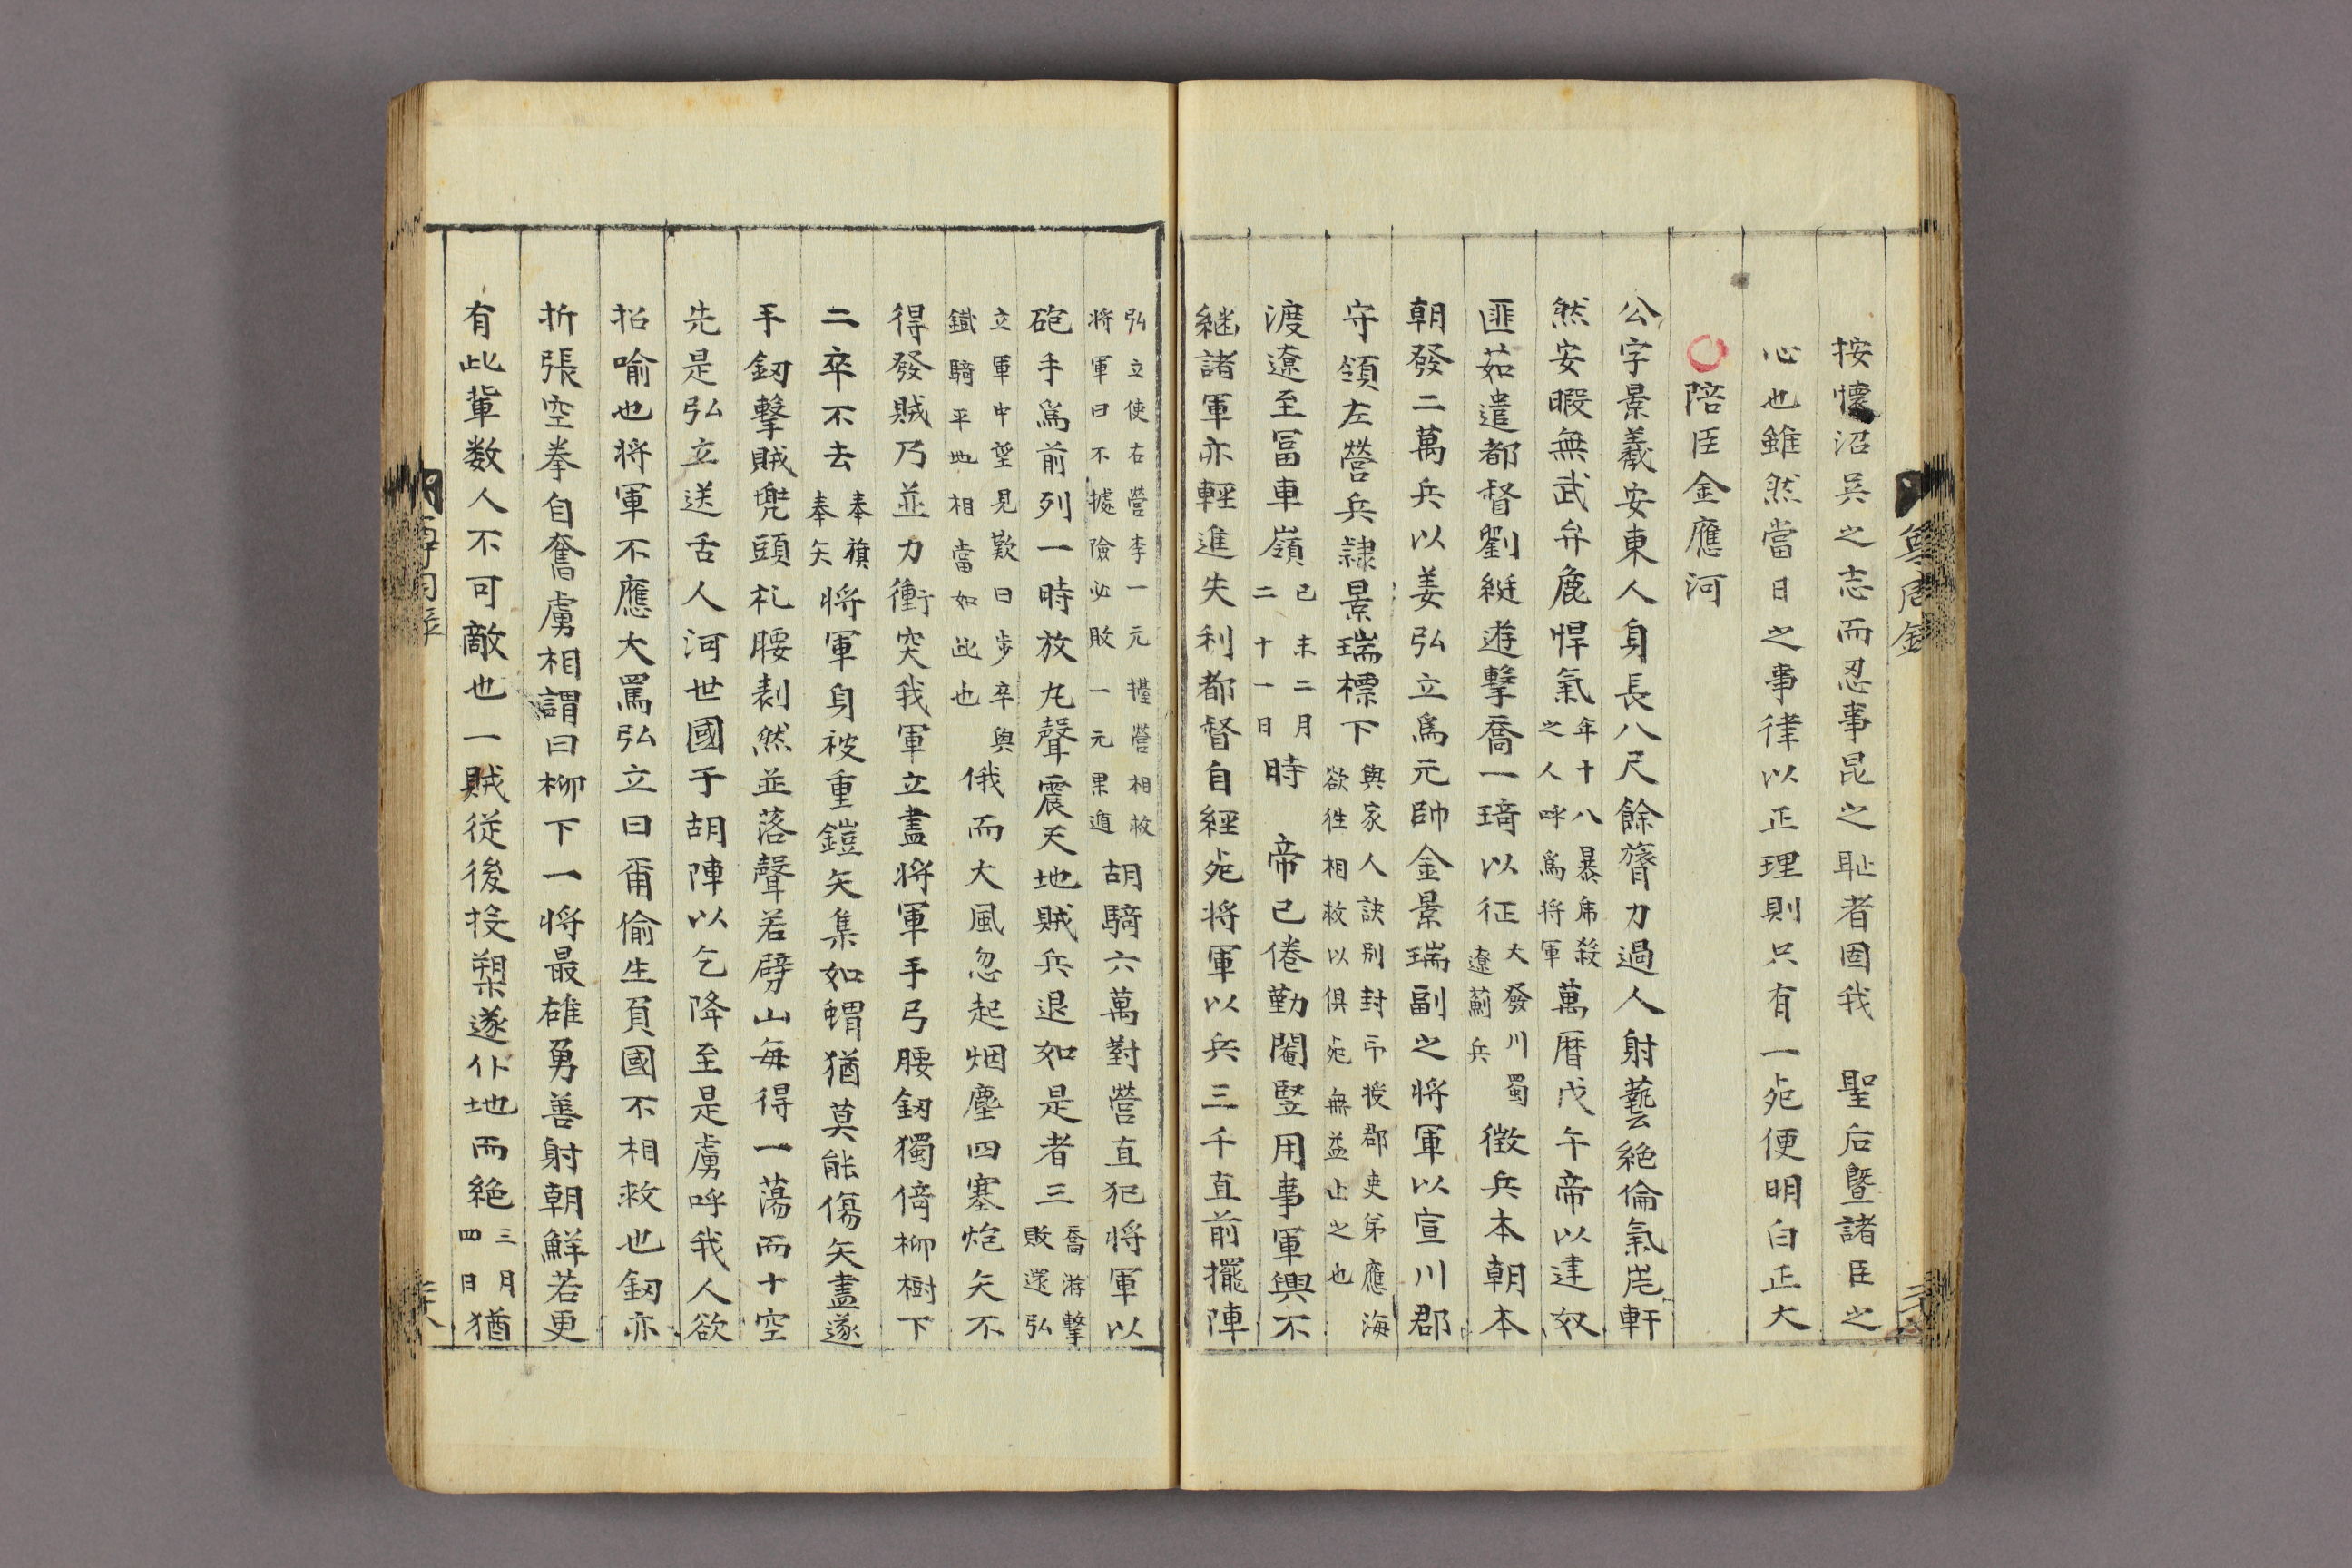 尊周錄
按懷沼吳之志而忍事昆之恥者固我　聖后曁諸臣之
心也雖然當日之事律以正理則只有一死便明白正大
陪臣金應河
公字景羲安東人身長八尺餘膂力過人射藝絶倫氣岸軒
然安暇無武弁麁悍氣年十八暴虎殺之人呼爲將軍萬曆戊午帝以建奴
匪茹遣都督劉綎遊擊喬一琦以征大發川蜀遼薊兵徵兵本朝本
朝發二萬兵以姜弘立爲元帥金景瑞副之將軍以宣川郡
守領左營兵隷景瑞標下與家人訣別封印授郡吏弟應海欲徃相救以俱死無益止之也
渡遼至冨車嶺己未二月二十一日時　帝已倦勤閹竪用事軍興不
継諸軍亦輕進失利都督自經死将軍以兵三千直前擺陣
弘立使右營李一元擡營相救将軍曰不據險必敗一元果遁胡騎六萬對營直犯将軍以
砲手爲前列一時放丸聲震天地賊兵退如是者三喬游擊敗還弘
立軍中望見歎曰步卒與鐵騎平地相當如此也俄而大風忽起烟塵四塞炮矢不
得發賊乃並力衝突我軍立盡将軍手弓腰釼獨倚柳樹下
二卒不去奉旗奉矢將軍身被重鎧矢集如蝟猶莫能傷矢盡遂
手釼擊賊兜頭札腰剨然並落聲若劈山每得一蕩而十空
先是弘立送舌人河世國于胡陣以乞降至是虜呼我人欲
招喻也将軍不應大罵弘立曰爾偷生負國不相救也釼亦
折張空拳自奮虜相謂曰柳下一将最雄勇善射朝鮮若更
有此輩数人不可敵也一賊從後投槊遂仆地而絶三月四日猶